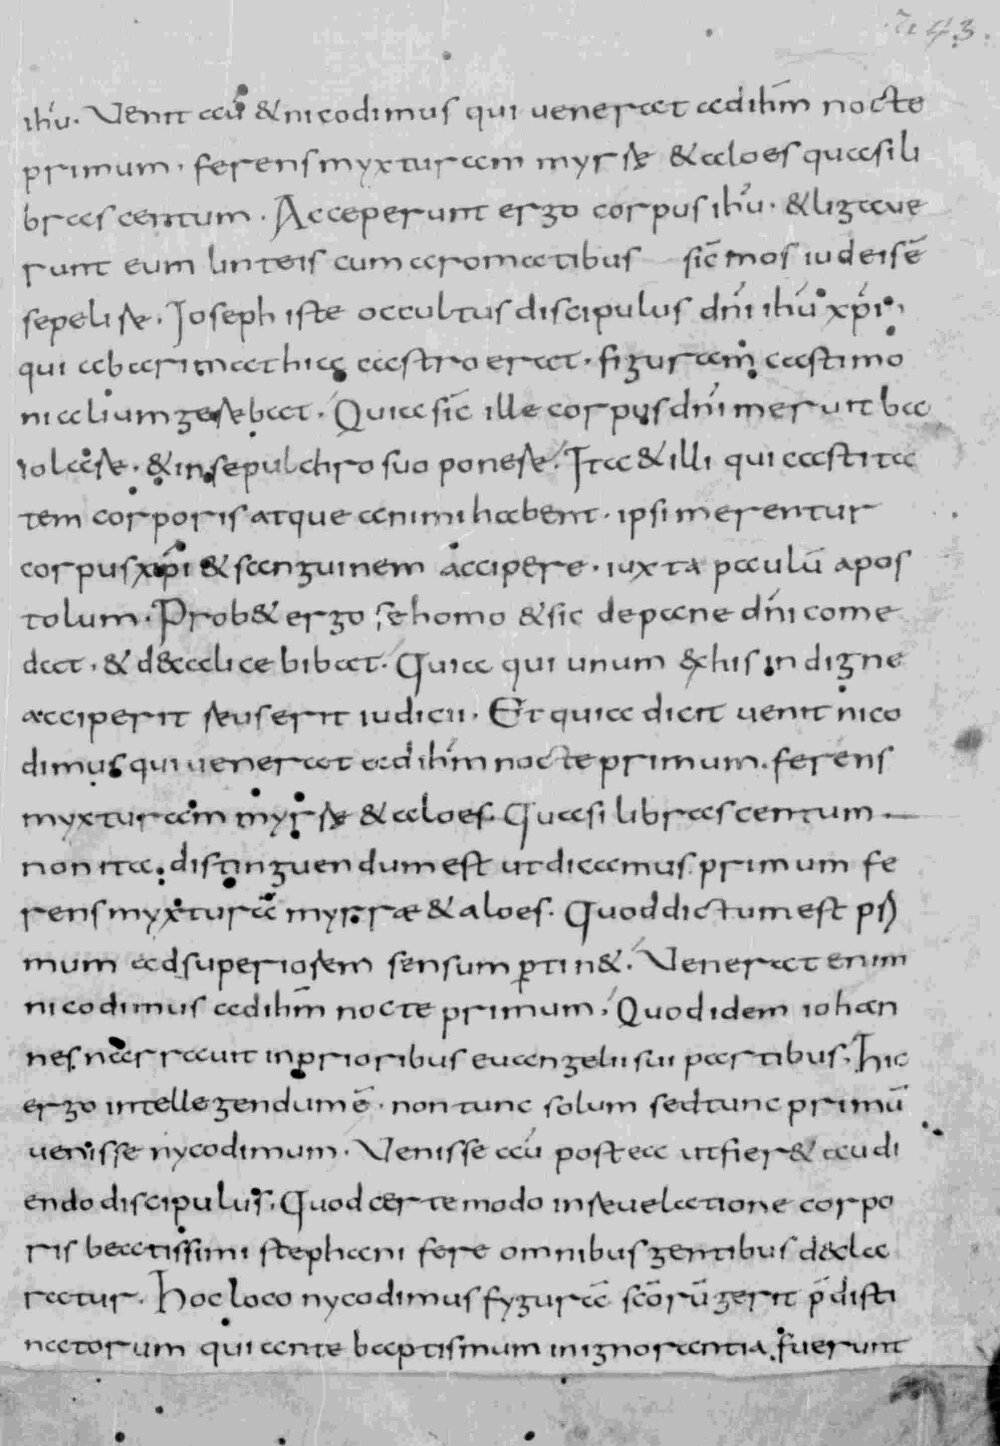 243.
ihu. Venit au & nicodimus qui uenerat ad ihm nocte
primum. ferens myxturam myrre & aloes quasi li
bras centum. Acceperunt ergo corpus ihu. & ligaue
runt eum linteis cum aromatibus sic mos iudeis ē
sepelire. Joseph iste occultus discipulus dni ihu xpi
qui ab arimathia castro erat. figuram castimo
nialium gerebat. Quia sic ille corpus dni meruit ba
iolare. & in sepulchro suo ponere. Ita & illi qui castita
tem corporis atque animi habent. ipsi merentur
corpus xpi & sanguinem accipere. iuxta paulū apos
tolum. Prob& ergo se homo & sic de pane dni come
dat. & de calice bibat. Quia qui unum ex his indigne
acciperit reus erit iudicii. Et quia dicit uenit nico
dimus qui uenerat ad ihm nocte primum. ferens
myxturam myrre & aloes. Quasi libras centum.
non ita. distinguendum est ut dicamus primum fe
rens myxturā myrræ & aloes. Quod dictum est pri
mum ad superiorem sensum ptin&. Venerat enim
nicodimus ad ihm nocte primum. Quod idem iohan
nes narrauit in prioribus euangelii sui partibus. Hic
ergo intellegendum ē. non tunc solum sed tunc primū
uenisse nycodimum. Venisse au postea ut fier& audi
endo discipulus. Quod certe modo in reuelatione corpo
ris beatissimi stephani fere omnibus gentibus decla
ratur. Hoc loco nycodimus fygurā scōrū gerit p̄disti
natorum qui ante baptismum in ignorantia fuerunt